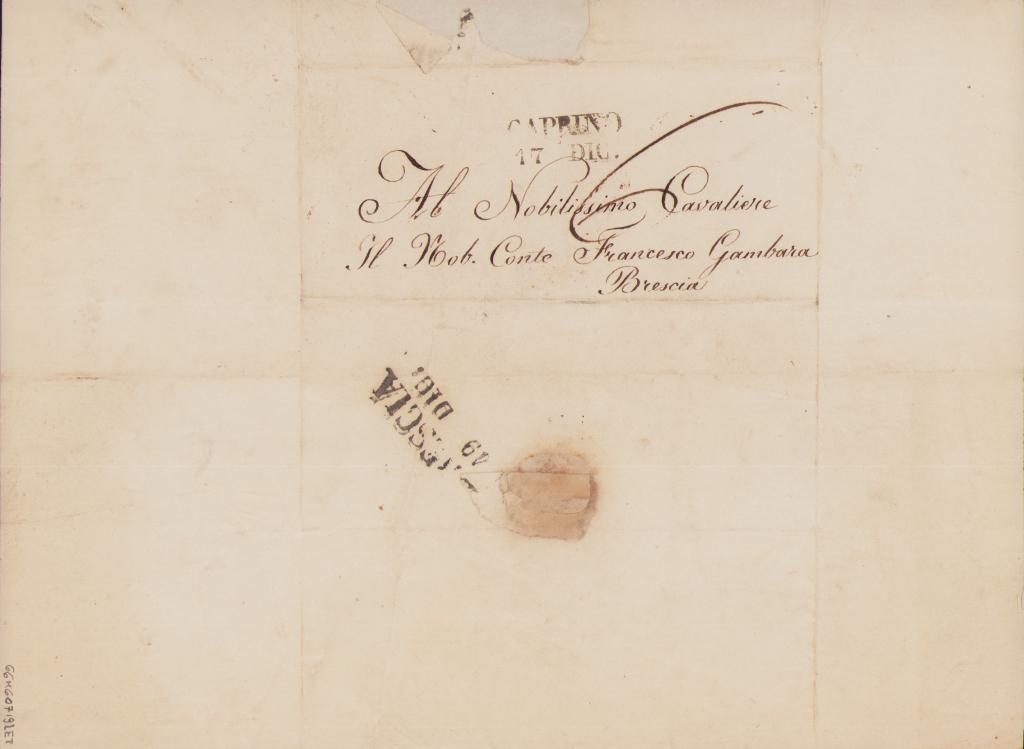 CAPRINO
17 DIC.
Al Nobilissimo Cavaliere
Il Nob. Conte Francesco Gambara
Brescia
BRESCIA
19 DIC.